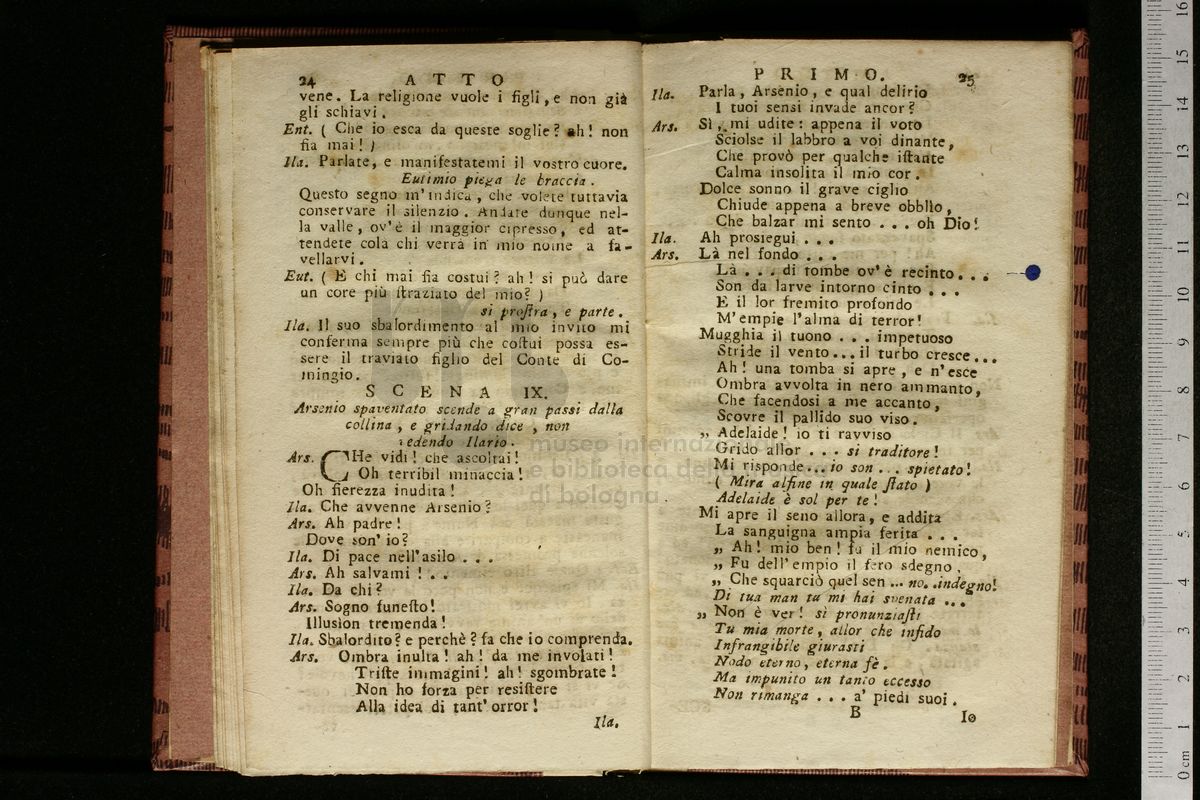 24 ATTO
vene. La religione vuole i figli, e non già
gli schiavi.
Ent. ( Che io esca da queste soglie? ah! non
fia mai! )
Ila. Parlate, e manifestatemi il vostro cuore.
Eutimio piega le braccia.
Questo segno m'indica, che volete tuttavia
conservare il silenzio. Andate dunque nel-
la valle, ov'è il maggior cipresso, ed at-
tendete colà chi verrà in mio nome a fa-
vellarvi.
Eut. ( E chi mai fia costui? ah! si può dare
un core più straziato del mio? )
si prostra, e parte.
Ila. Il suo sbalordimento al mio invito mi
conferma sempre più che costui possa es-
sere il traviato figlio del Conte di Co-
mingio.
SCENA IX.
Arsenio spaventato scende a gran passi dalla
collina, e gridando dice, non
vedendo Ilario.
Ars. CHe vidi! che ascoltai!
Oh terribil minaccia!
Oh fierezza inudita!
Ila. Che avvenne Arsenio?
Ars. Ah padre!
Dove son' io?
Ila. Di pace nell'asilo . . .
Ars. Ah salvami ! . .
Ila. Da chi?
Ars. Sogno funesto!
Illusion tremenda!
Ila. Sbalordito? e perchè? fa che io comprenda.
Ars. Ombra inulta! ah! da me involati!
Triste immagini! ah! sgombrate!
Non ho forza per resistere
Alla idea di tant' orror!
Ila.
PRIMO. 25
Ila. Parla, Arsenio, e qual delirio
I tuoi sensi invade ancor?
Ars. Sì, mi udite: appena il voto
Sciolse il labbro a voi dinante,
Che provò per qualche istante
Calma insolita il mio cor.
Dolce sonno il grave ciglio
Chiude appena a breve obblìo,
Che balzar mi sento . . . oh Dio!
Ila. Ah prosiegui . . .
Ars. Là nel fondo . . .
Là . . . di tombe ov' è recinto . . .
Son da larve intorno cinto . . .
E il lor fremito profondo
M'empie l'alma di terror!
Mugghia il tuono . . . impetuoso
Stride il vento... il turbo cresce...
Ah! una tomba si apre, e n'esce
Ombra avvolta in nero ammanto,
Che facendosi a me accanto,
Scovre il pallido suo viso.
„ Adelaide! io ti ravviso
Grido allor . . . si traditore!
Mi risponde... io son . . . spietato!
( Mira alfine in quale stato )
Adelaide è sol per te!
Mi apre il seno allora, e addita
La sanguigna ampia ferita . . .
„ Ah! mio ben! fu il mio nemico,
„ Fu dell'empio il fero sdegno,
„ Che squarciò quel sen ... no. .indegno!
Di tua man tu mi hai svenata ...
„ Non è ver! sì pronunziasti
Tu mia morte, allor che infido
Infrangibile giurasti
Nodo eterno, eterna fè.
Ma impunito un tanto eccesso
Non rimanga . . . a' piedi suoi.
B Io
museo internazionale
e biblioteca della musica
di bologna
0 cm 1 2 3 4 5 6 7 8 9 10 11 12 13 14 15 16